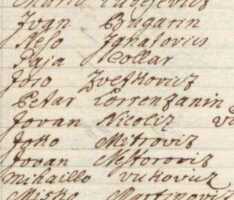 Ivan Bugarin
Neso Ignatovics
Paja Kollar
Joso Zvetkovics
Petar Lorrenzanin
Jovan Nicolics
Joko Mitrovics
Jovan Nestorovics
Mihaillo Vukovics
Misko Martinovics